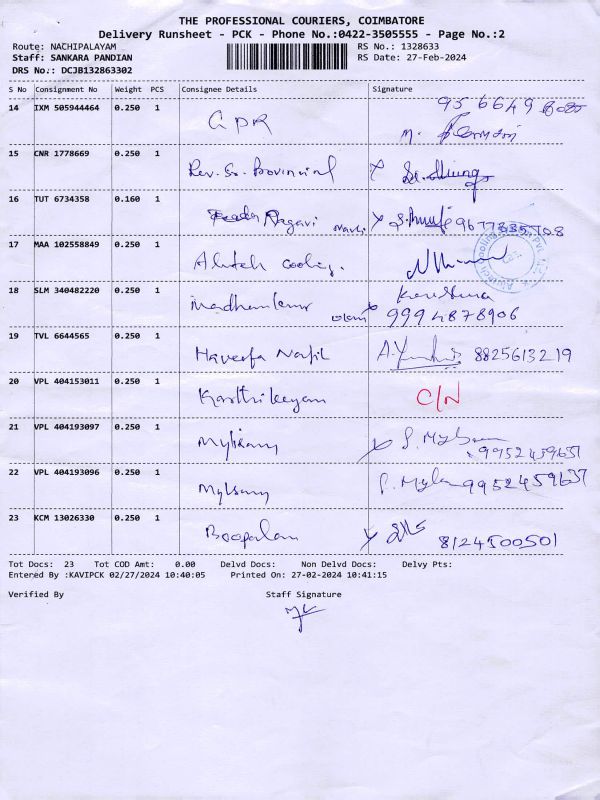 THE PROFESSIONAL COURIERS, COIMBATORE
Delivery Runsheet - PCK - Phone No.:0422-3505555 - Page No.:2
Route: NACHIPALAYAM RS No.: 1328633
Staff: SANKARA PANDIAN RS Date: 27-Feb-2024
DRS No.: DCJB132863302
S No Consignment No Weight PCS Consignee Details Signature
14 IXM 505944464 0.250 1 GPR
15 CNR 1778669 0.250 1 Rev. Sr. Provincial
16 TUT 6734358 0.160 1 Ragavi
17 MAA 102558849 0.250 1 cooling.
18 SLM 340482220 0.250 1 9994878906
19 TVL 6644565 0.250 1 8825613219
20 VPL 404153011 0.250 1 Karthikeyan C/N
21 VPL 404193097 0.250 1 9952459637
22 VPL 404193096 0.250 1 9952459637
23 KCM 13026330 0.250 1 Boopalan 8124500501
Tot Docs: 23 Tot COD Amt: 0.00 Delvd Docs: Non Delvd Docs: Delvy Pts:
Entered By :KAVIPCK 02/27/2024 10:40:05 Printed On: 27-02-2024 10:41:15
Verified By Staff Signature